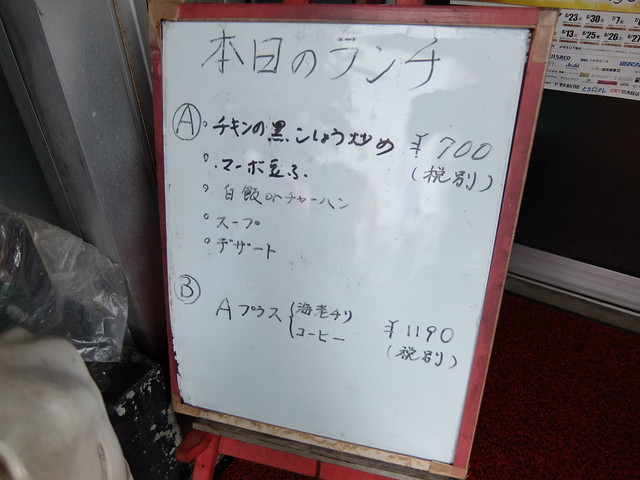 本日のランチ
Ⓐ ｡チキンの黒こしょう炒め ¥700
｡マーボ豆ふ (税別)
｡白飯orチャーハン
｡スープ
｡デザート
Ⓑ
Aプラス{海老チリ ¥1190
コーヒー (税別)
6/23 6/30
6/13 6/25 6/26